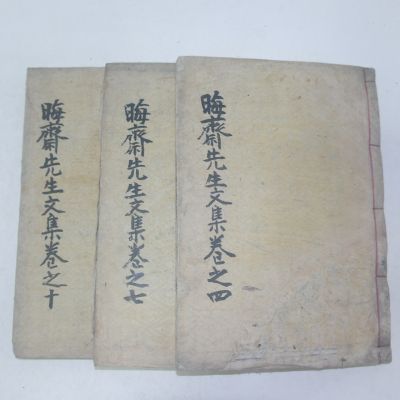 晦齋先生文集卷之四
晦齋先生文集卷之七
晦齋先生文集卷之十